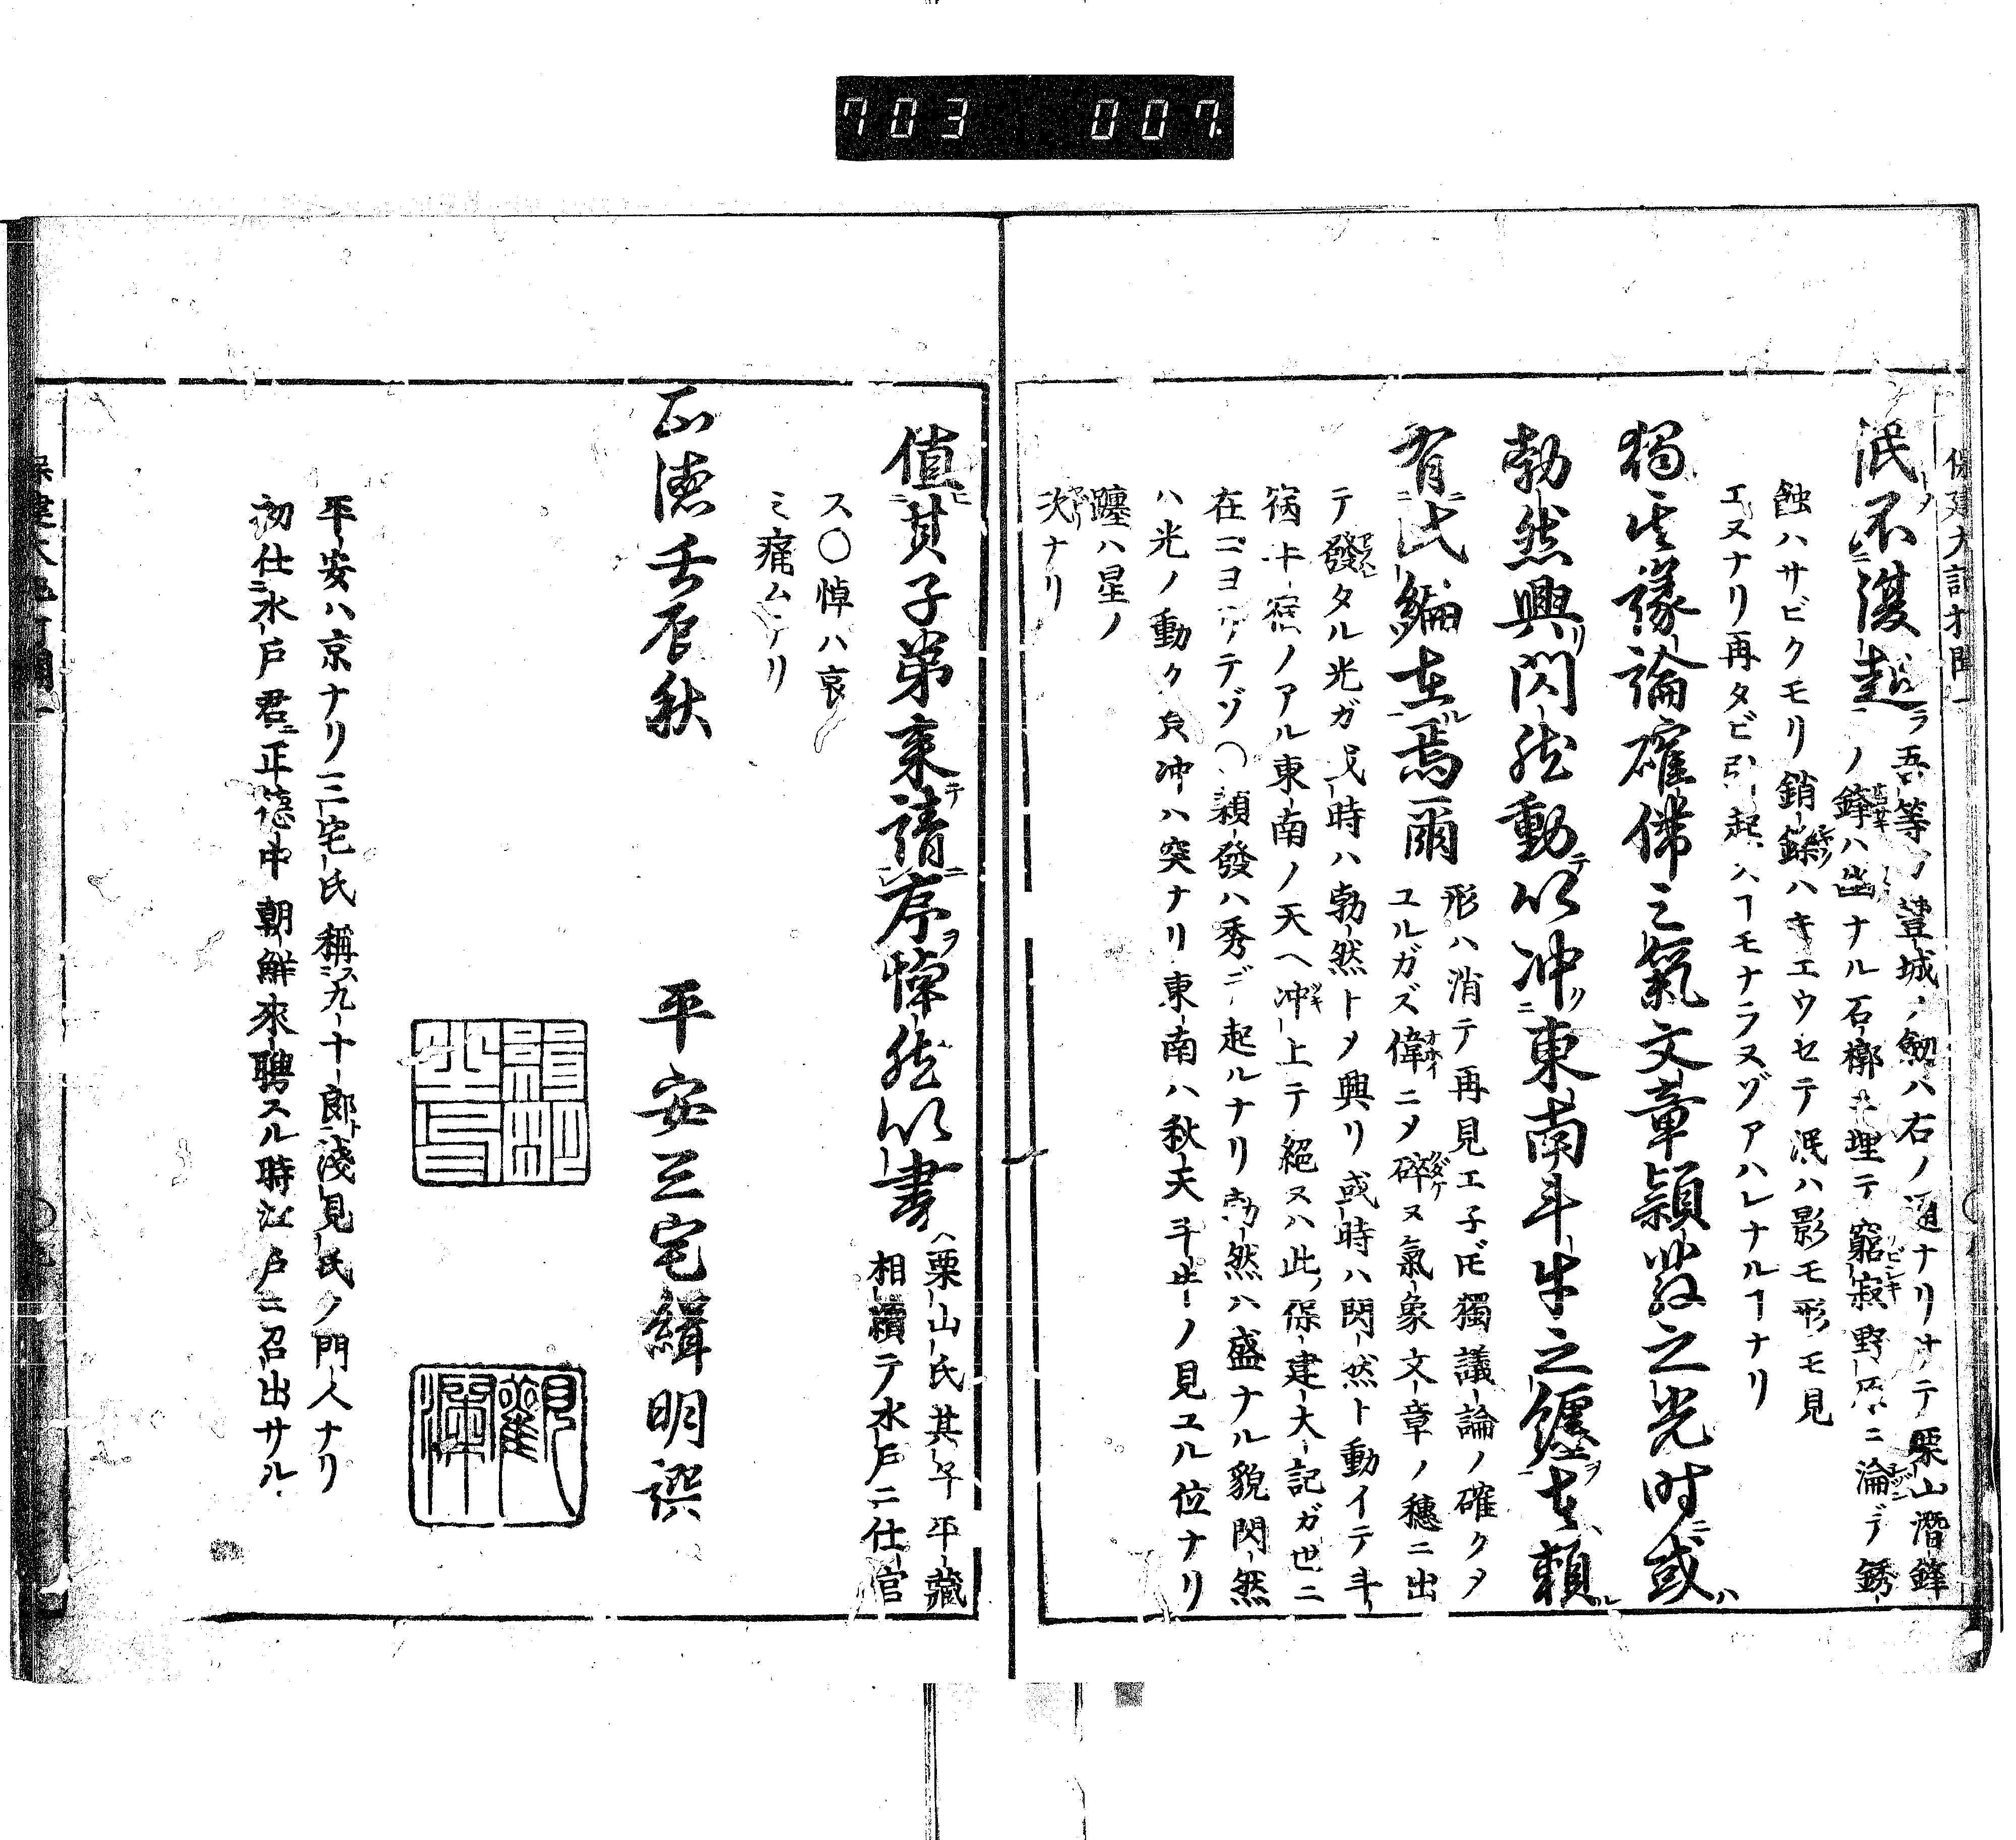 703 007
保建大記打聞一
泯不復起ラ吾等ノ豊城ノ劔ハ右ノ通ナリサテ栗山潜鋒
ノ鋒ハ幽ナル石槨ニ埋テ窮寂野原ニ淪デ銹
蝕ハサビクモリ銷鑠ハキエウセテ泯ハ影モ形モ見
エヌナリ再タビ引起ハヿモナラヌゾアハレナルヿナリ
獨其議論確偉之氣文章頴發之光時或
勃然興閃然動以冲東南斗牛之躔者頼
有此編在焉爾
形ハ消テ再見エ子𪜈獨議論ノ確クタ
ユルガズ偉ニメ碎ヌ氣象文章ノ穗ニ出
テ發タル光ガ或時ハ勃然トメ興リ或時ハ閃然ト動イテ斗
宿牛宿ノアル東南ノ天ヘ冲上テ絕ヌハ此保建大記ガ世ニ
在ニヨリテゾ〇頴發ハ秀デ起ルナリ勃然ハ盛ナル貌閃然
ハ光ノ動ク皃冲ハ突ナリ東南ハ秋天斗牛ノ見ユル位ナリ
躔ハ星ノ
次ナリ
値其子弟来請序悼然以書
栗山氏其弟平藏
相續テ水戶ニ仕官
ス〇悼ハ哀
ミ痛ムナリ
正徳壬辰秋
平安三宅緝明譔
觀瀾
平安ハ京ナリ三宅氏稱ス九十郎ト淺見氏ノ門人ナリ
初仕水戶君ニ正德中朝鮮來聘スル時江戶ニ召出サル